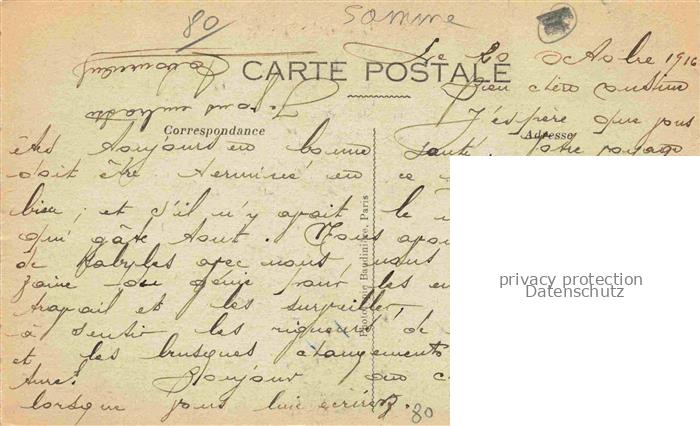 80 Somme
Le 20 Octobre 1916
CARTE POSTALE
Bien chère cousine
Je vous embrasse
J'espère que vous
Correspondance
Adresse
êtes toujours en bonne santé. Votre voyage
doit être terminé en ce
bien, et s'il n'y avait le
qui gâte tout. Nous avons
de Kabyles avec nous nous
faire du génie pour les
travail et les surveiller,
à sentir les rigueurs de
et les brusques changements
Bonjour au
lorsque vous lui écrirez.
80
Phototypie Baudinière, Paris
privacy protection
Datenschutz